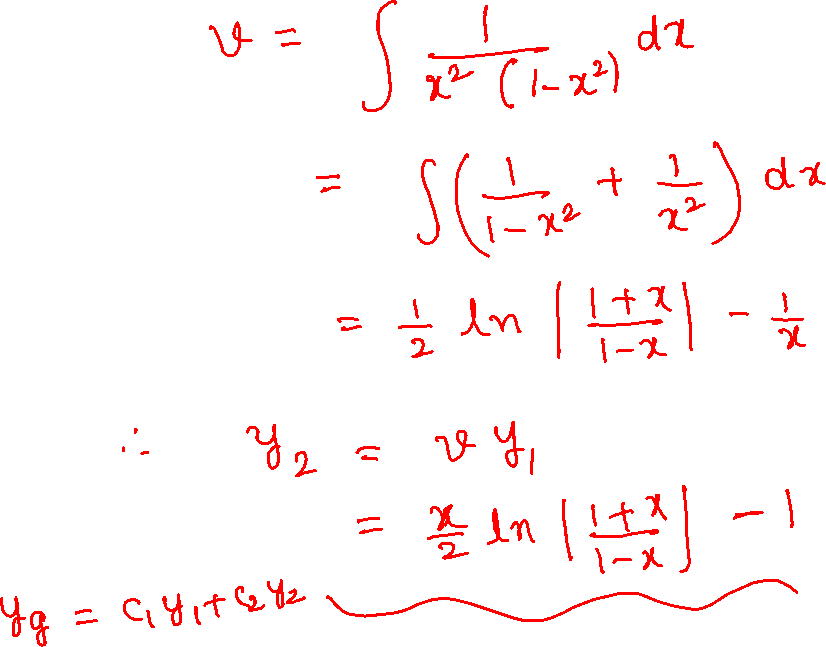 v = ∫ 1/(x² (1-x²)) dx
= ∫ (1/(1-x²) + 1/x²) dx
= 1/2 ln |(1+x)/(1-x)| - 1/x
∴ y₂ = v y₁
= x/2 ln |(1+x)/(1-x)| - 1
y_g = c₁y₁+c₂y₂